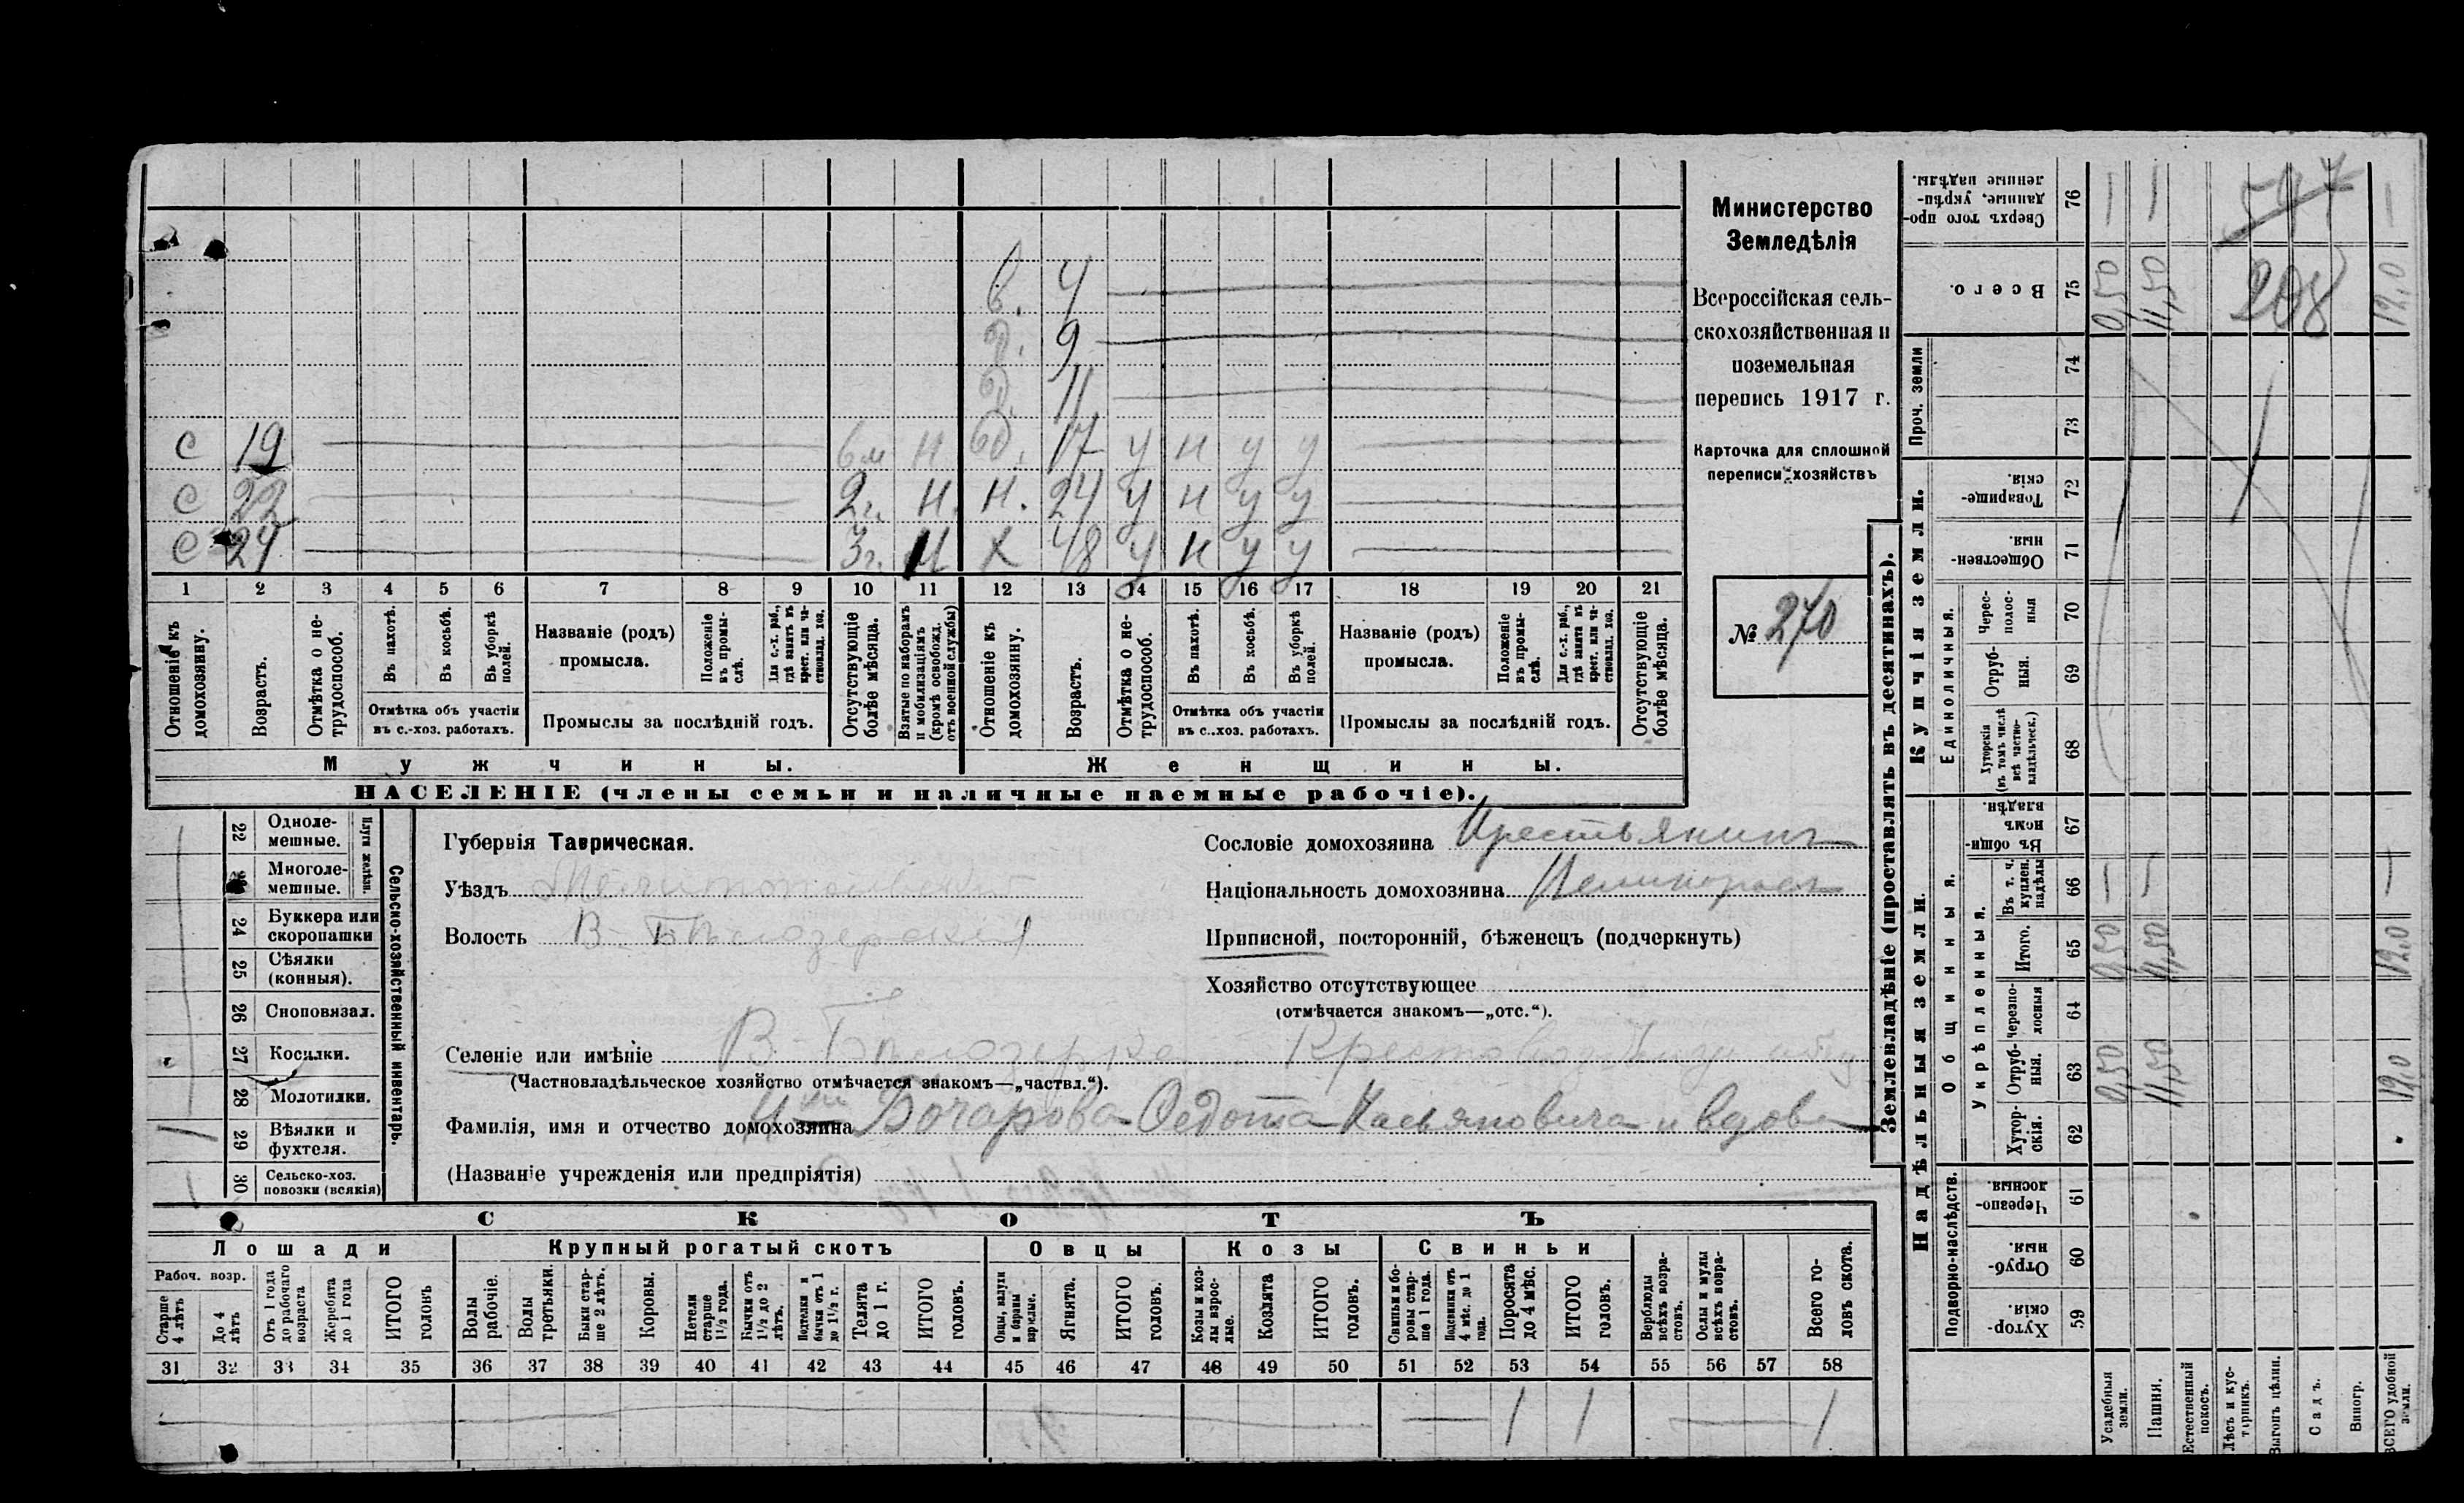 в. 4
д. 9
д. 11
С 19 6м Н бд. 17 у н у у
С 22 2г. Н. Н. 24 у н у у
С 24 3г. Н Х 48 у н у у
1 2 3 4 5 6 7 8 9 10 11 12 13 14 15 16 17 18 19 20 21
Отношеніе къ домохозяину.
Возрастъ.
Отмѣтка о нетрудоспособ.
Въ пахотѣ.
Въ косьбѣ.
Въ уборкѣ полей.
Отмѣтка объ участіи
въ с.-хоз. работахъ.
Названіе (родъ)
промысла.
Положеніе въ промыслѣ.
Для с.-х. раб., гдѣ занятъ въ крест. или частновлад. хоз.
Промыслы за послѣдній годъ.
Отсутствующіе болѣе мѣсяца.
Взятые по наборамъ и мобилизаціямъ (кромѣ освобожд. отъ военной службы)
Отношеніе къ домохозяину.
Возрастъ.
Отмѣтка о нетрудоспособ.
Въ пахотѣ.
Въ косьбѣ.
Въ уборкѣ полей.
Отмѣтка объ участіи
въ с..хоз. работахъ.
Названіе (родъ)
промысла.
Положеніе въ промыслѣ.
Для с.-х. раб., гдѣ занята въ крест. или частновлад. хоз.
Промыслы за послѣдній годъ.
Отсутствующіе болѣе мѣсяца.
Мужчины. Женщины.
НАСЕЛЕНІЕ (члены семьи и наличные наемные рабочіе).
Министерство
Земледѣлія
Всероссійская сель-
скохозяйственная и
поземельная
перепись 1917 г.
Карточка для сплошной
переписи хозяйствъ
№ 270
Сельско-хозяйственный инвентарь.
Плуги желѣзн.
22 Одноле-
мешные.
Многоле-
мешные.
24 Буккера или
скоропашки
25 Сѣялки
(конныя).
26 Сноповязал.
27 Косилки.
28 Молотилки.
29 Вѣялки и
фухтеля.
30 Сельско-хоз.
повозки (всякія)
Губернія Таврическая.
Уѣздъ Мелитопольскій
Волость В-Бѣлозерская
Сословіе домохозяина Крестьянинъ
Національность домохозяина Великороссъ
Приписной, посторонній, бѣженецъ (подчеркнуть)
Хозяйство отсутствующее
(отмѣчается знакомъ—„отс.“).
Селеніе или имѣніе В-Бѣлозерка
(Частновладѣльческое хозяйство отмѣчается знакомъ—„частвл.“).
Фамилія, имя и отчество домохозяина Бочарова Федота Касьяновича и вдова
(Названіе учрежденія или предпріятія)
СКОТЪ
Лошади Крупный рогатый скотъ Овцы Козы Свиньи
Рабоч. возр.
Старше 4 лѣтъ
До 4 лѣтъ
Отъ 1 года до рабочаго возраста
Жеребята до 1 года
ИТОГО головъ
Волы рабочіе.
Волы третьяки.
Быки старше 2 лѣтъ.
Коровы.
Нетели старше 1½ года.
Бычки отъ 1½ до 2 лѣтъ.
Подтелки и бычки отъ 1 до 1½ г.
Телята до 1 г.
ИТОГО головъ.
Овцы, валухи и бараны взрослые.
Ягнята.
ИТОГО головъ.
Козы и козлы взрослые.
Козлята
ИТОГО головъ.
Свиньи и боровы старше 1 года.
Подсвинки отъ 4 мѣс. до 1 года.
Поросята до 4 мѣс.
ИТОГО головъ.
Верблюды всѣхъ возрастовъ.
Ослы и мулы всѣхъ возрастовъ.
Всего головъ скота.
31 32 33 34 35 36 37 38 39 40 41 42 43 44 45 46 47 48 49 50 51 52 53 54 55 56 57 58
1 1 1
Землевладѣніе (проставлять въ десятинахъ).
Надѣльныя земли. Купчія земли. Проч. земли
Подворно-наслѣдств.
Общинныя.
Укрѣпленныя.
Единоличныя.
Хуторскія. 59
Отрубныя. 60
Черезполосныя. 61
Хуторскія. 62
Отрубныя. 63 0,50 11,50 12,0
Черезполосныя 64
Итого. 65 0,50 11,50 12,0
Въ т. ч. куплен. надѣлы 66
Въ общинномъ владѣн. 67
Хуторскія (въ томъ числѣ всѣ частновладѣльческ.) 68
Отрубныя. 69
Чересполосныя 70
Общественныя. 71
Товарищескія. 72
73
74
Всего. 75 0,50 11,50 12,0
Сверхъ того проданные, укрѣпленные надѣлы. 76
547
208
Усадебныя земли.
Пашня.
Естественный покосъ.
Лѣсъ и кустарникъ.
Выгонъ цѣлин.
Садъ.
Виногр.
ВСЕГО удобной земли.